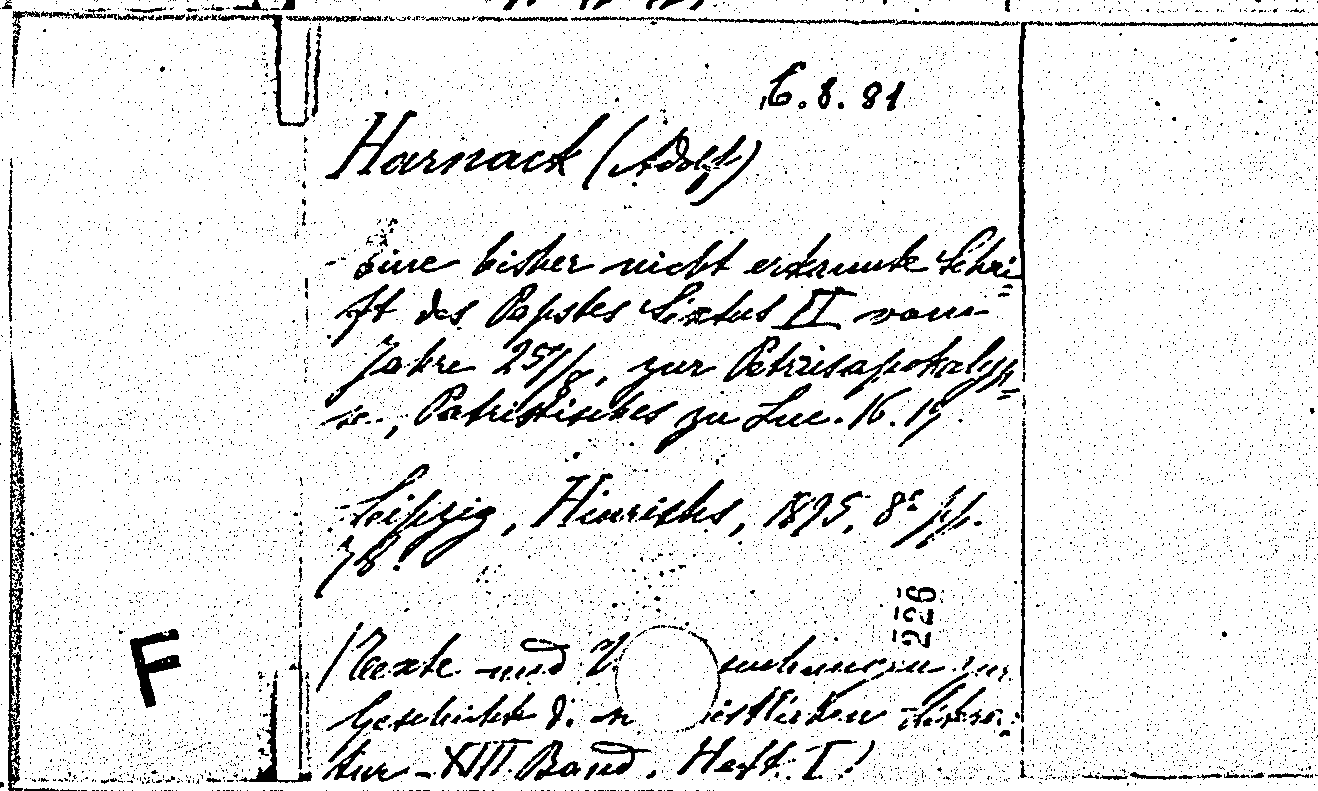 6.8.81
Harnack (Adolf)
Eine bisher nicht erkannte Schri=
ft des Papstes Sixtus II vom
Jahre 257/8, zur Petrusapokalyp=
se., Patristisches zu Luc. 16. 19.
Leipzig, Hinrichs, 1895, 8° pp.
78.
226
(Texte und U suchungen zur
F
Geschichte d. istlichen Litera:
tur - XIII Band. Heft. I)